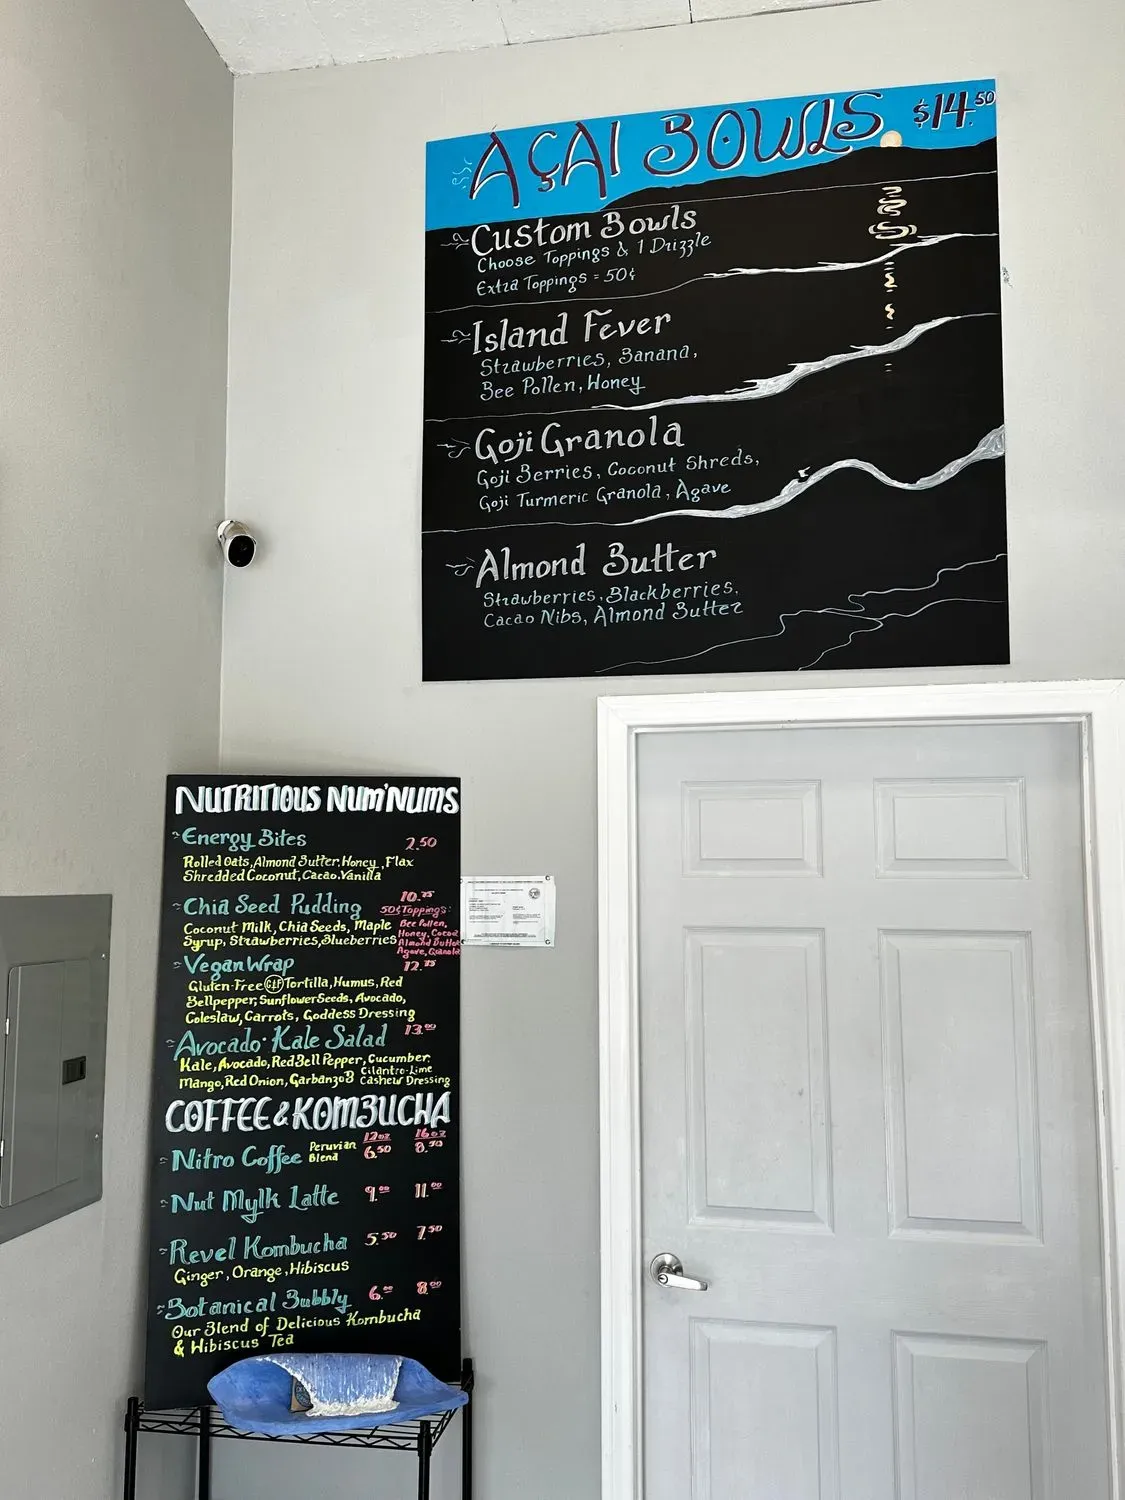 AÇAI BOWLS $14.50
Custom Bowls
Choose Toppings & 1 Drizzle
Extra Toppings = 50¢
Island Fever
Strawberries, Banana,
Bee Pollen, Honey
Goji Granola
Goji Berries, Coconut Shreds,
Goji Turmeric Granola, Agave
Almond Butter
Strawberries, Blackberries,
Cacao Nibs, Almond Butter
NUTRITIOUS NUM'NUMS
Energy Bites 2.50
Rolled Oats, Almond Butter, Honey, Flax
Shredded Coconut, Cacao, Vanilla
Chia Seed Pudding 10.75
50¢ Toppings:
Coconut Milk, Chia Seeds, Maple
Syrup, Strawberries, Blueberries
Bee Pollen,
Honey, Cacao
Almond Butter
Agave, Granola
Vegan Wrap 12.75
Gluten-Free GF Tortilla, Humus, Red
Bellpepper, Sunflower Seeds, Avocado,
Coleslaw, Carrots, Goddess Dressing
Avocado·Kale Salad 13.00
Kale, Avocado, Red Bell Pepper, Cucumber,
Mango, Red Onion, GarbanzoB Cilantro-Lime
Cashew Dressing
COFFEE & KOMBUCHA
12oz 16oz
Nitro Coffee Peruvian Blend 6.50 8.50
Nut Mylk Latte 9.00 11.00
Revel Kombucha 5.50 7.50
Ginger, Orange, Hibiscus
Botanical Bubbly 6.00 8.00
Our Blend of Delicious Kombucha
& Hibiscus Tea